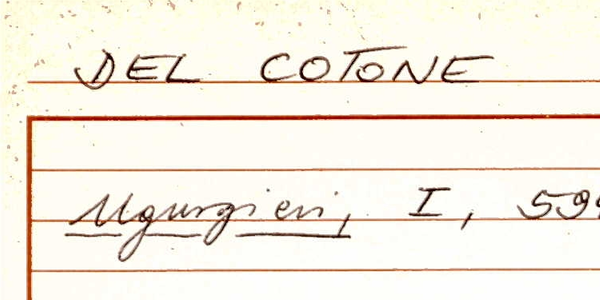 DEL COTONE
Ugurgieri, I, 59